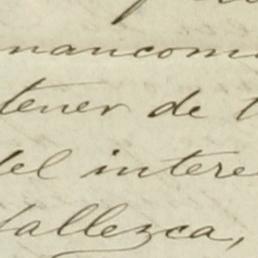 mancom
tener de t
del intere
fallezca,